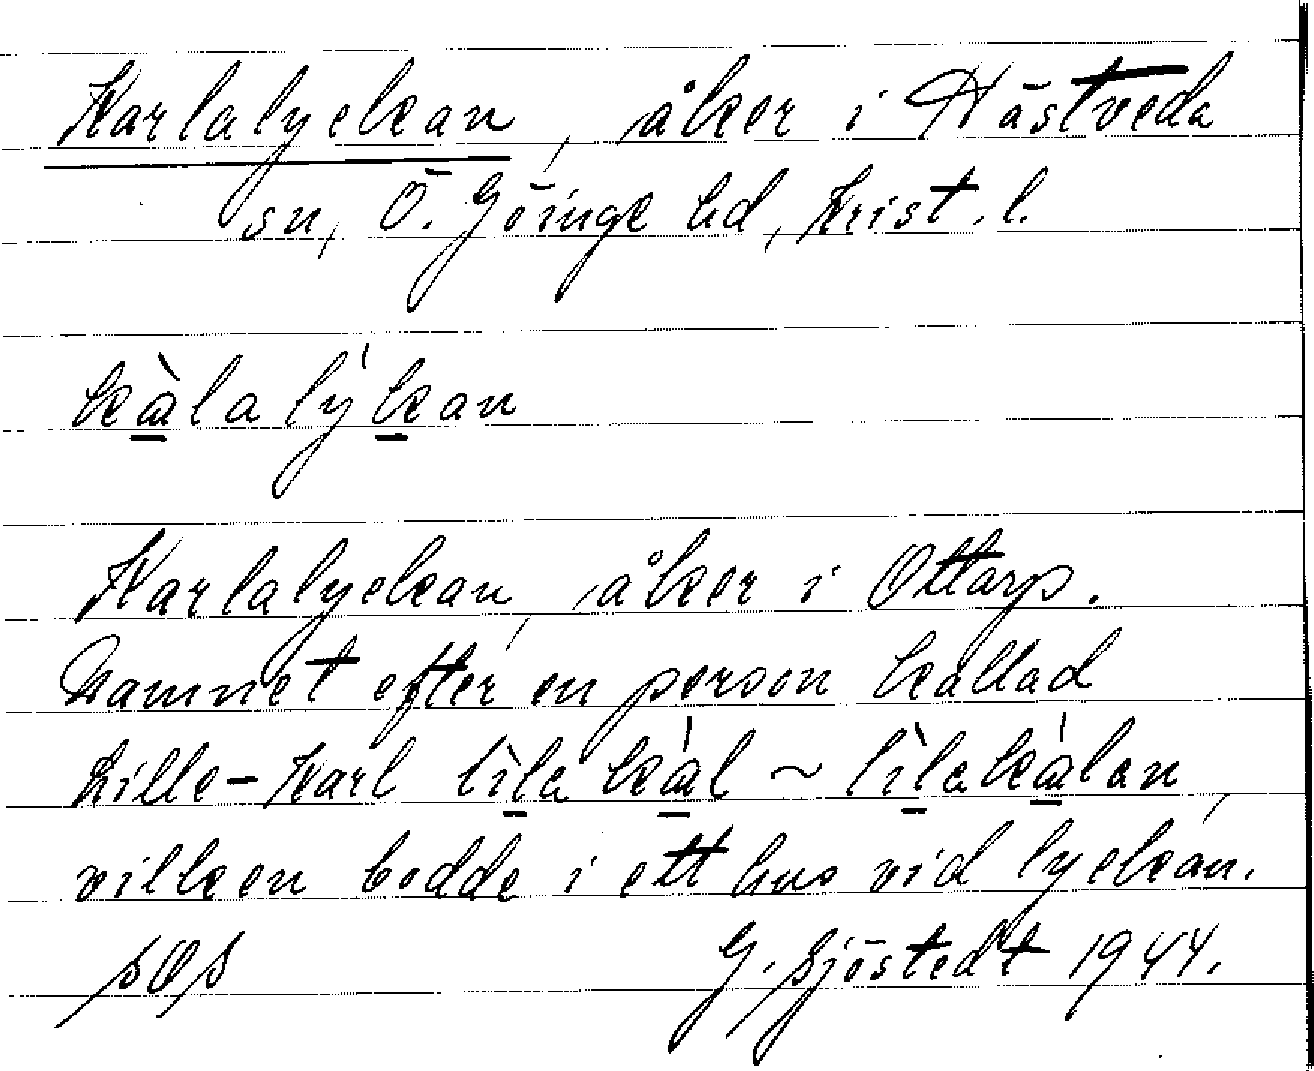 Karlalyckan, åker i Hästveda
sn, Ö. Göinge hd, Krist. l.
kàlalýkan
Karlalyckan, åker i Ottarp.
Namnet efter en person kallad
Lille-Karl lìla kál ~ lìlakálen,
vilken bodde i ett hus vid lyckan.
SOS G. Sjöstedt 1944.